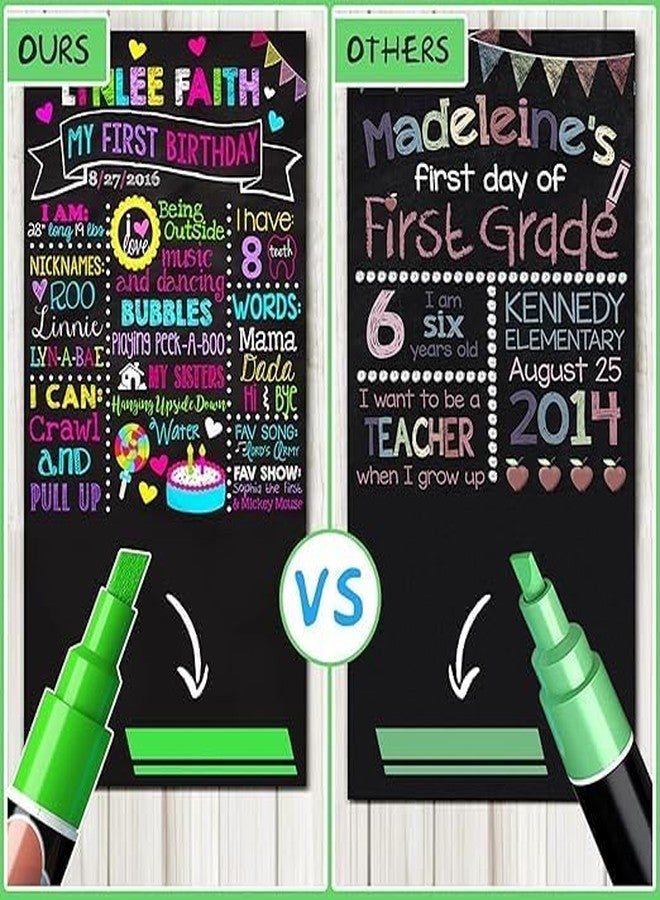 OURS
LYNLEE FAITH
MY FIRST BIRTHDAY
8/27/2016
I AM:
28" long 19 lbs
NICKNAMES:
ROO
Linnie
LYN-A-BAE
I CAN:
Crawl
AND
PULL UP
i
love
Being
Outside
music
and dancing
BUBBLES
PLAYING PEEK-A-BOO
MY SISTERS
Hanging Upside Down
Water
I have:
8 teeth
WORDS:
Mama
Dada
Hi & Bye
FAV SONG:
Lord's Army
FAV SHOW:
Sophia the First
& Mickey Mouse
VS
OTHERS
Madeleine's
first day of
First Grade
6
I am
six
years old
I want to be a
TEACHER
when I grow up
KENNEDY
ELEMENTARY
August 25
2014